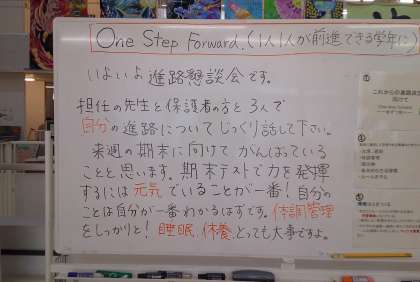 One Step Forward.(1人1人が前進できる学年に)
いよいよ進路懇談会です。
担任の先生と保護者の方と3人で
自分の進路についてじっくり話して下さい。
来週の期末に向けてがんばっている
ことと思います。期末テストで力を発揮
するには元気でいることが一番!自分の
ことは自分が一番わかるはずです。体調管理
をしっかりと!睡眠、休養、とっても大事ですよ。
これからの進路決定に
向けて